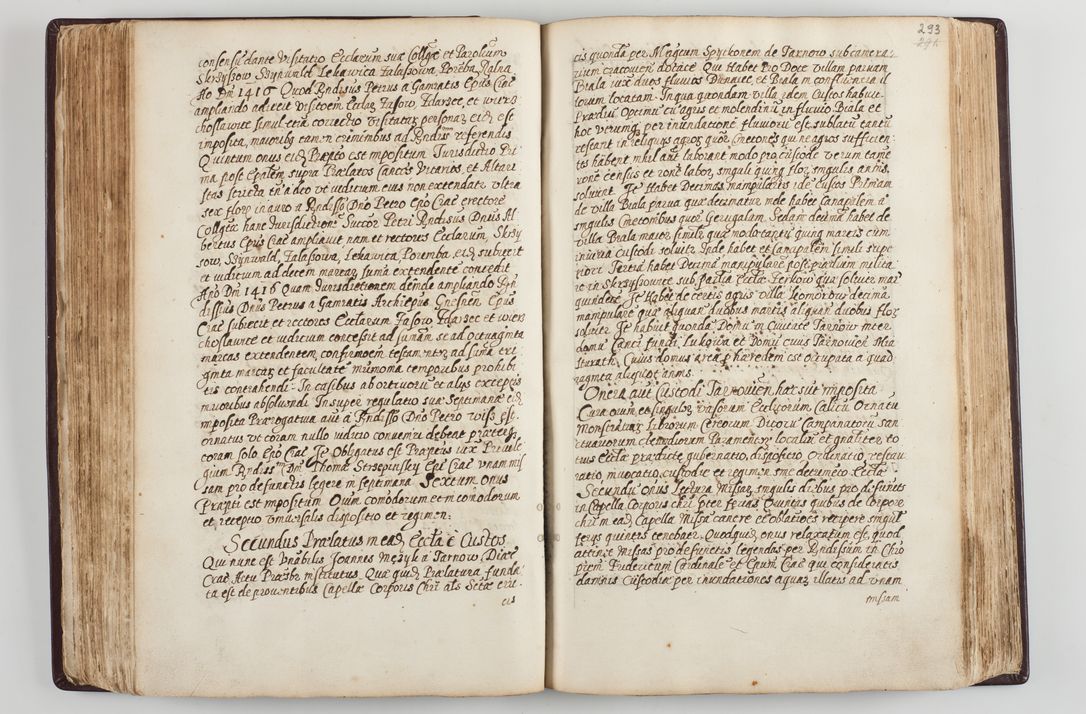 consensu dante Visitatio Ecclarum suæ Collgæ et Parolium
Skrzyszow Szynwald Lekawica Zalassowa Poręba Radlna
Ao Dm 1416 Quod Rndisus Petrus a Gamratis Epus Crac
ampliando adiecit visitoem Ecclar Jasow, Zdarzec, et wierz
choslawice simul etia correctio visitatar personar eid est
imposita, maioribq tamen criminibus ad Rndis referendis
Quintum onus eid Præpto est impositum Jurisdictio Pri
ma post Epalem supra Prælatos Cancos Vicarios, et Altari
stas scricta tn a deo vt iudicium eius non extendatr vltra
sex flor in auro a Rndisso Dno Petro Epo Crac erectore
Collgæ hanc Jurisdictione Succor Petri Rndisus Dnus Al
bertus Epus Crac ampliavit nam et rectores Ecclarum, Skrzy
sow, Szynwald, Zalassowa, Lekawica, Poremba, eid subiecit
et iudicium ad decem marcas suma extendente concedit
Ao Dm 1416 Quam Jurisdictionem deinde ampliando Rn
dissus Dnus Petrus a Gamratis Archiepus Gnesnen Epus
Crac subiecit et rectores Ecclarum Jasow Zdarzec et wierz
choslawice et iudicium concessit ad sumam se ad octuaginta
marcas extendentem confirmoem testamentor ad suma tri
ginta marcar et facultate matrimonia temporibus prohibi
tis contrahendi In casibus abortivorum et alys exceptis
maioribus absoluendi Insuper regulatio suæ Septimanæ eid
imposita Prærogatiua aut a Rndisso Dno Petro wiss est
ornatus vt coram nullo iudicio conueniri debeat præterqz
coram solo Epo Crac Je Obligatus est Præptus iux Priuile
gium Rndiss Dni Thomæ Strsepinsky Epi Crac vnam mis
sam pro defunctis legere in septimana Sextum onus
Præpti est impositum Oium comodorum et incomodorum
et receptio vniuersalis dispositio et regimen:
Secundus Prælatus in ead Eccla e Custos
Qui nunc est Vnabilis Joannes Mezyk a Tarnow Diæc
Crac Actu Præsbr institutus Quæ quid Prælatura funda
ta est de prouentibus Capellæ Corporis Chri als Sctæ cru
cis
293
cis quonda per Magcum Spytkonem de Tarnow subcamera
rium cracouien dotatæ Qui Habet Pro Dote villam paruam
Biala iux duos fluuios Dunaiec et Biala in confluencia il
lorum locatam. In qua quondam villa idem Custos habuit
Prædiu Optimu cu agris et molendinu in fluuio Biala et
hoc verumqz per inundatione fluuioru est sublatu tantu
restant in reliquis agros quor Cmetones quinæ agros sufficien
tes habent nihil aut laborant modo pro custode verum tame
rone census et rone labor singuli quinq flor singulis annis
soluunt. Je Habet Decimas manipulares idem custos Primam
de villa Biala parua quæ decimatur inde habet Canapalem a
singulis Cmetonibus quor Gerugalam. Sedam decima habet de
villa Biala maior simile quæ modo taxari quinq marcis cum
iniuria Custodi soluitr Inde habet et Canapalem simile supe
riori Tertia habet Decima manipulare post prædium milita
re in Skrzyssowice sub parlia Eccla Zerkow qua soluitr mar
quindeci Je Habet de certis agris villæ Komorow decima
manipulare quæ aliquan duabus marcis aliquan duobus flor
soluitr Je habuit quonda Domu in Ciuitate Tarnow inter
domu Canci fundi Lukowa et Domu cuius Tarnouien Ma
sturath, Cuius domus area p hæredem est occupata a quad
raginta aliquot annis.
Onera aut Custodi Tarnouien, hæc sut imposita
Cura oium et singulor Vasorum Ecclicorum Calicu Ornatu
Monstratiar Librorum Cereorum Ducoru Campanatoru san
ctuariorum clenodiorum Paramentor localiu et gnaliter to
tius Eccla prædictæ gubernatio, dispositio ordinatio, restau
ratio, inuocatio, custodie et regimen sine detrimeto Eccla
Secundu onus Lectura Missar singulis diebus pro defunctis
in Capella Corporis chri pter ferias Quintas quibus de Corpore
chri in ead Capella Missa canere et oblatioes recipere singul
ferys quintis tenebatr. Quodquid, onus relaxatum est, quod
attinet missas pro defunctis legendas per Rndissum in Chro
prem Fridericum Cardinale et Epum Crac qui consideratis
damnis Custodiæ per inundationes aquar illatis ad vnam
missam